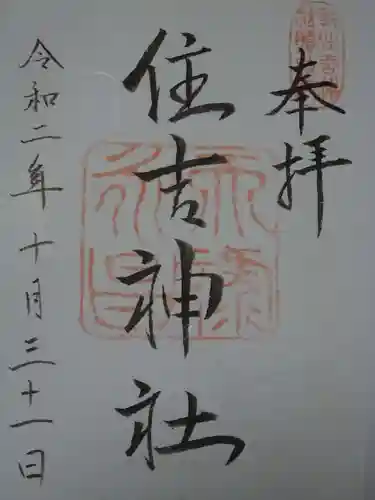 奉拝
住吉神社
令和二年十月三十一日